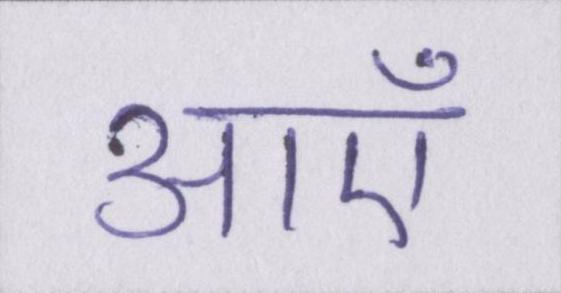 आएँ